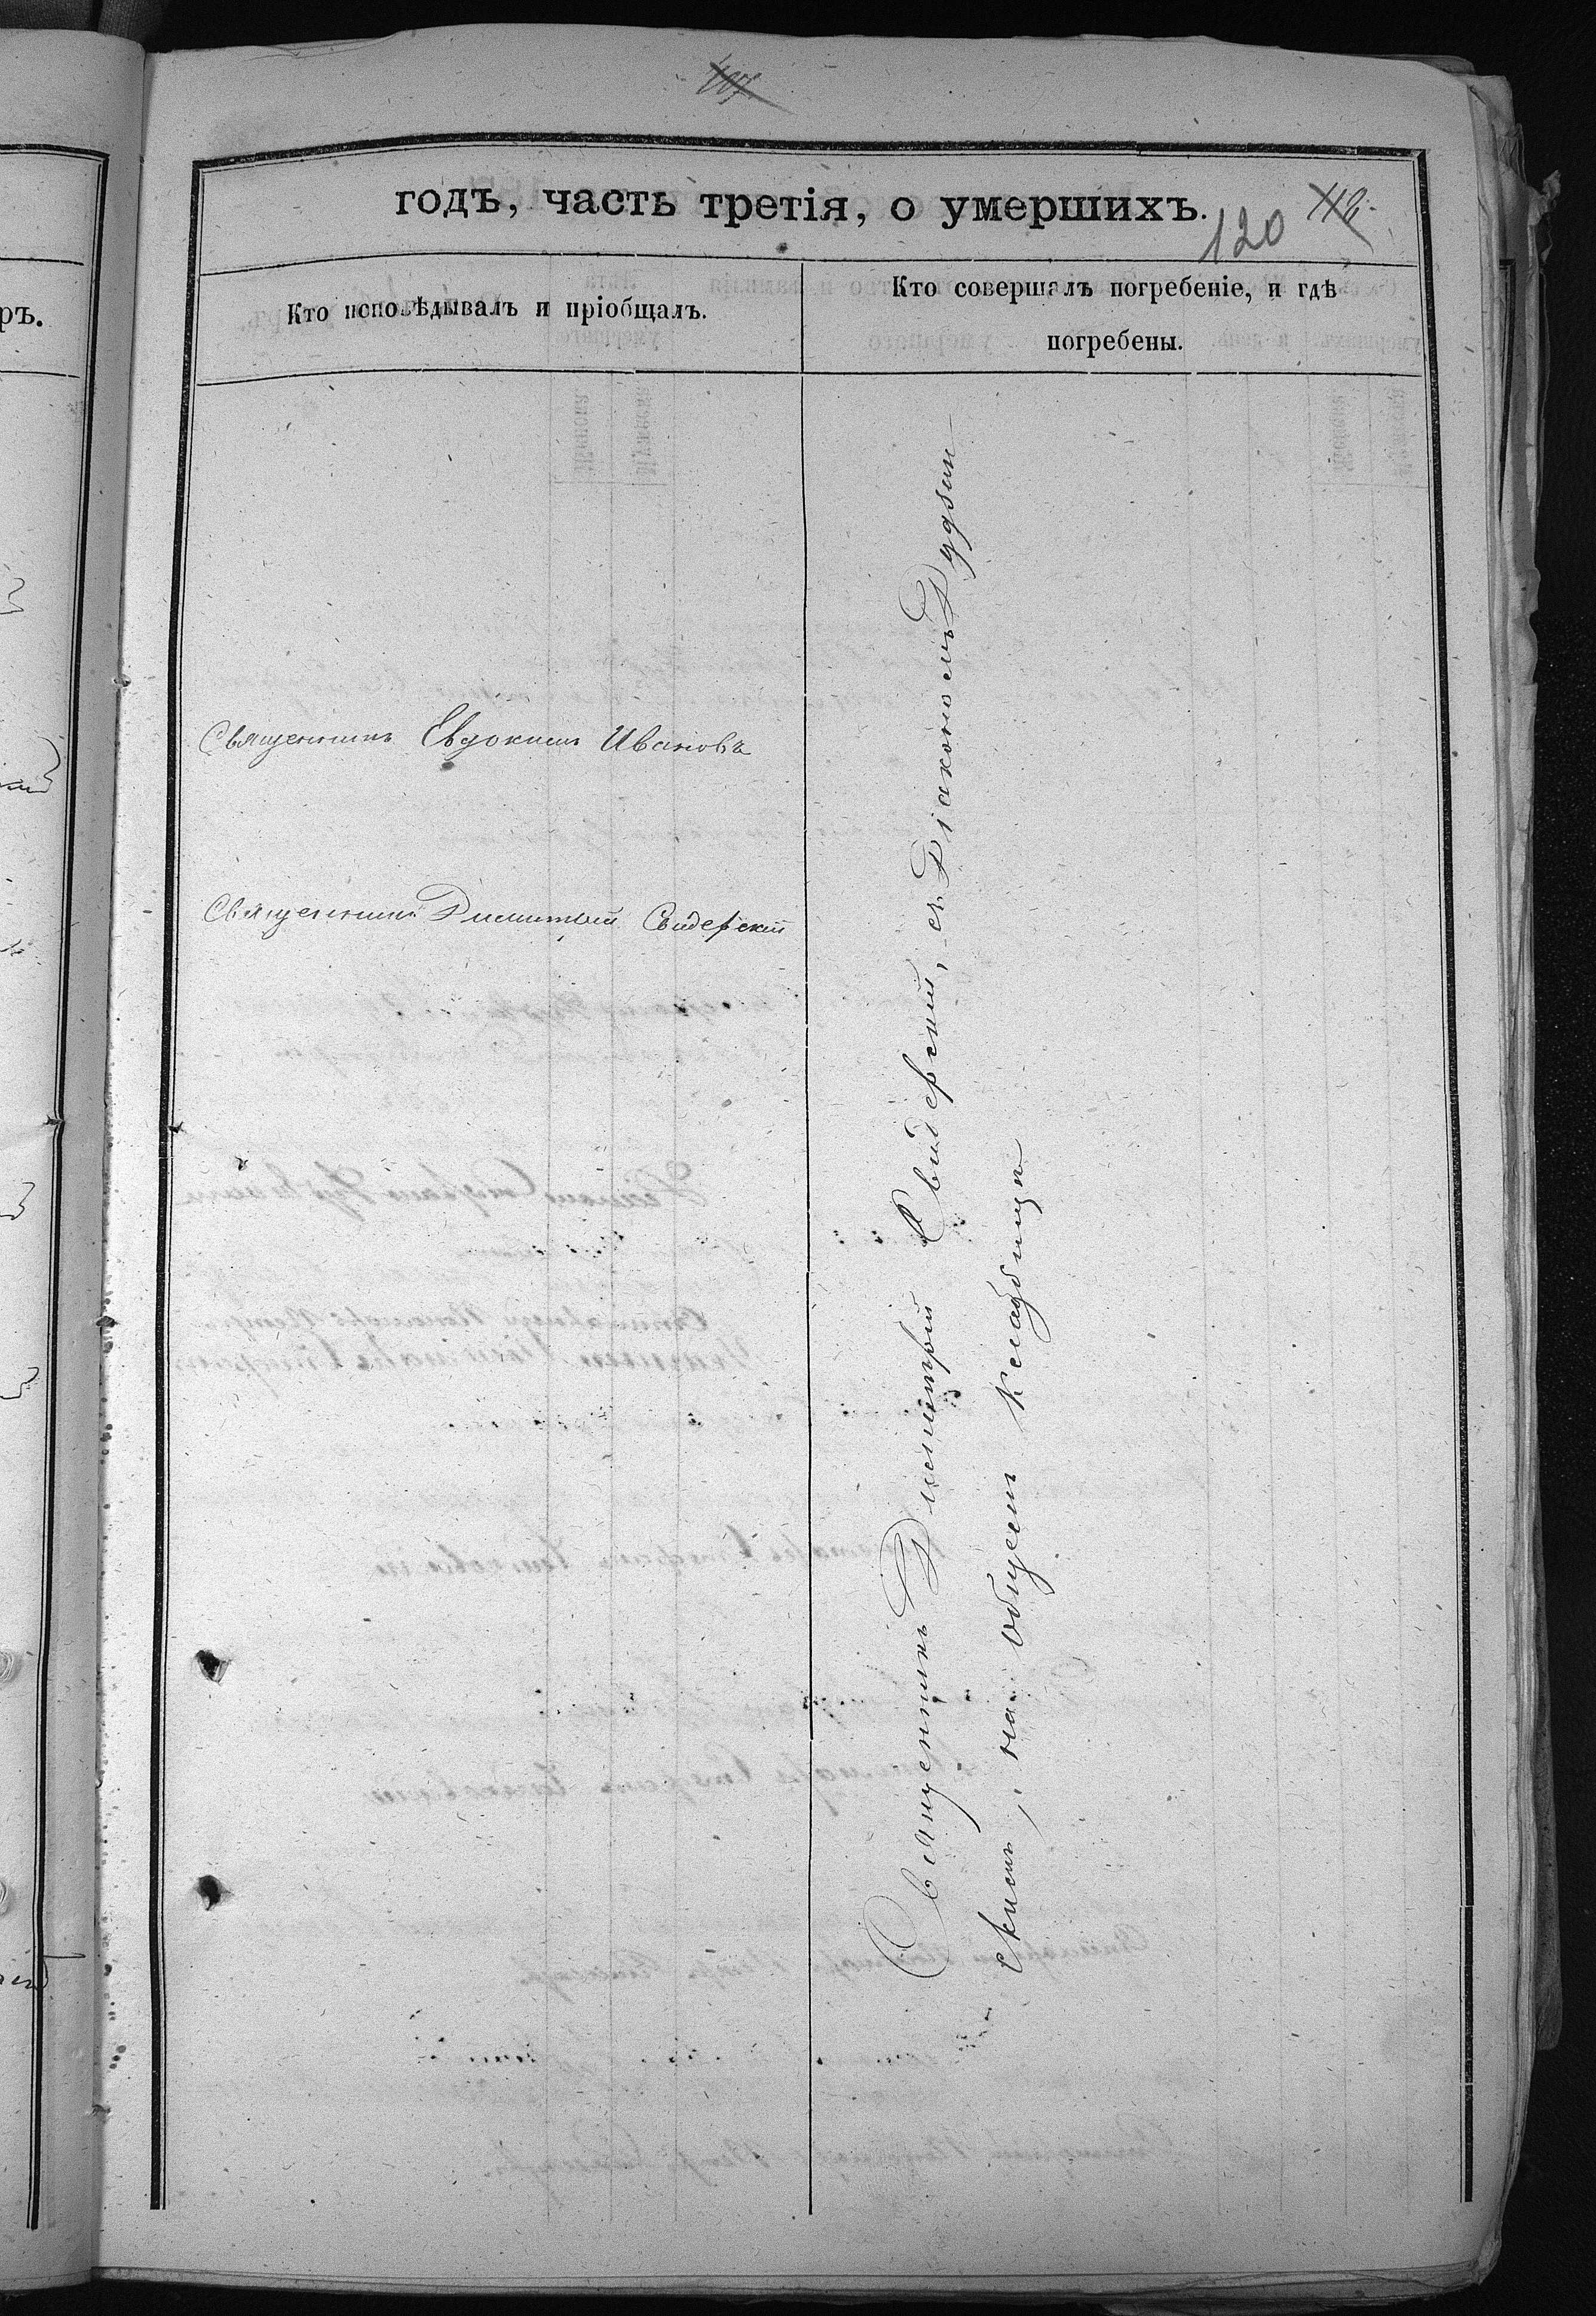 107
годъ, часть третія, о умершихъ.
120
Кто исповѣдывалъ и пріобщалъ.
Кто совершалъ погребеніе, и гдѣ
погребены.
ръ.
Священникъ Евдокимъ Ивановъ
Священникъ Димитрій Свидерскій
Священникъ Димитрій Свидерскій, съ Діакономъ Дудзин
скимъ, на общемъ кладбищѣ